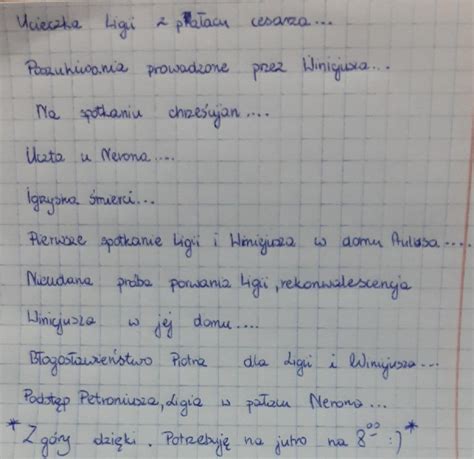 Ucieczka Ligi z pałacu cesarza...
Poszukiwania prowadzone przez Winicjusza...
Na spotkaniu chrześcijan....
Uczta u Nerona....
Igrzyska śmierci...
Pierwsze spotkanie Ligii i Winicjusza w domu Aulusa....
Nieudana próba porwania Ligii, rekonwalescencja
Winicjusza w jej domu....
Błogosławieństwo Piotra dla Ligii i Winicjusza...
Podstęp Petroniusza, Ligia w pałacu Nerona...
* Z góry dzięki. Potrzebuję na jutro na 8⁰⁰ :) *